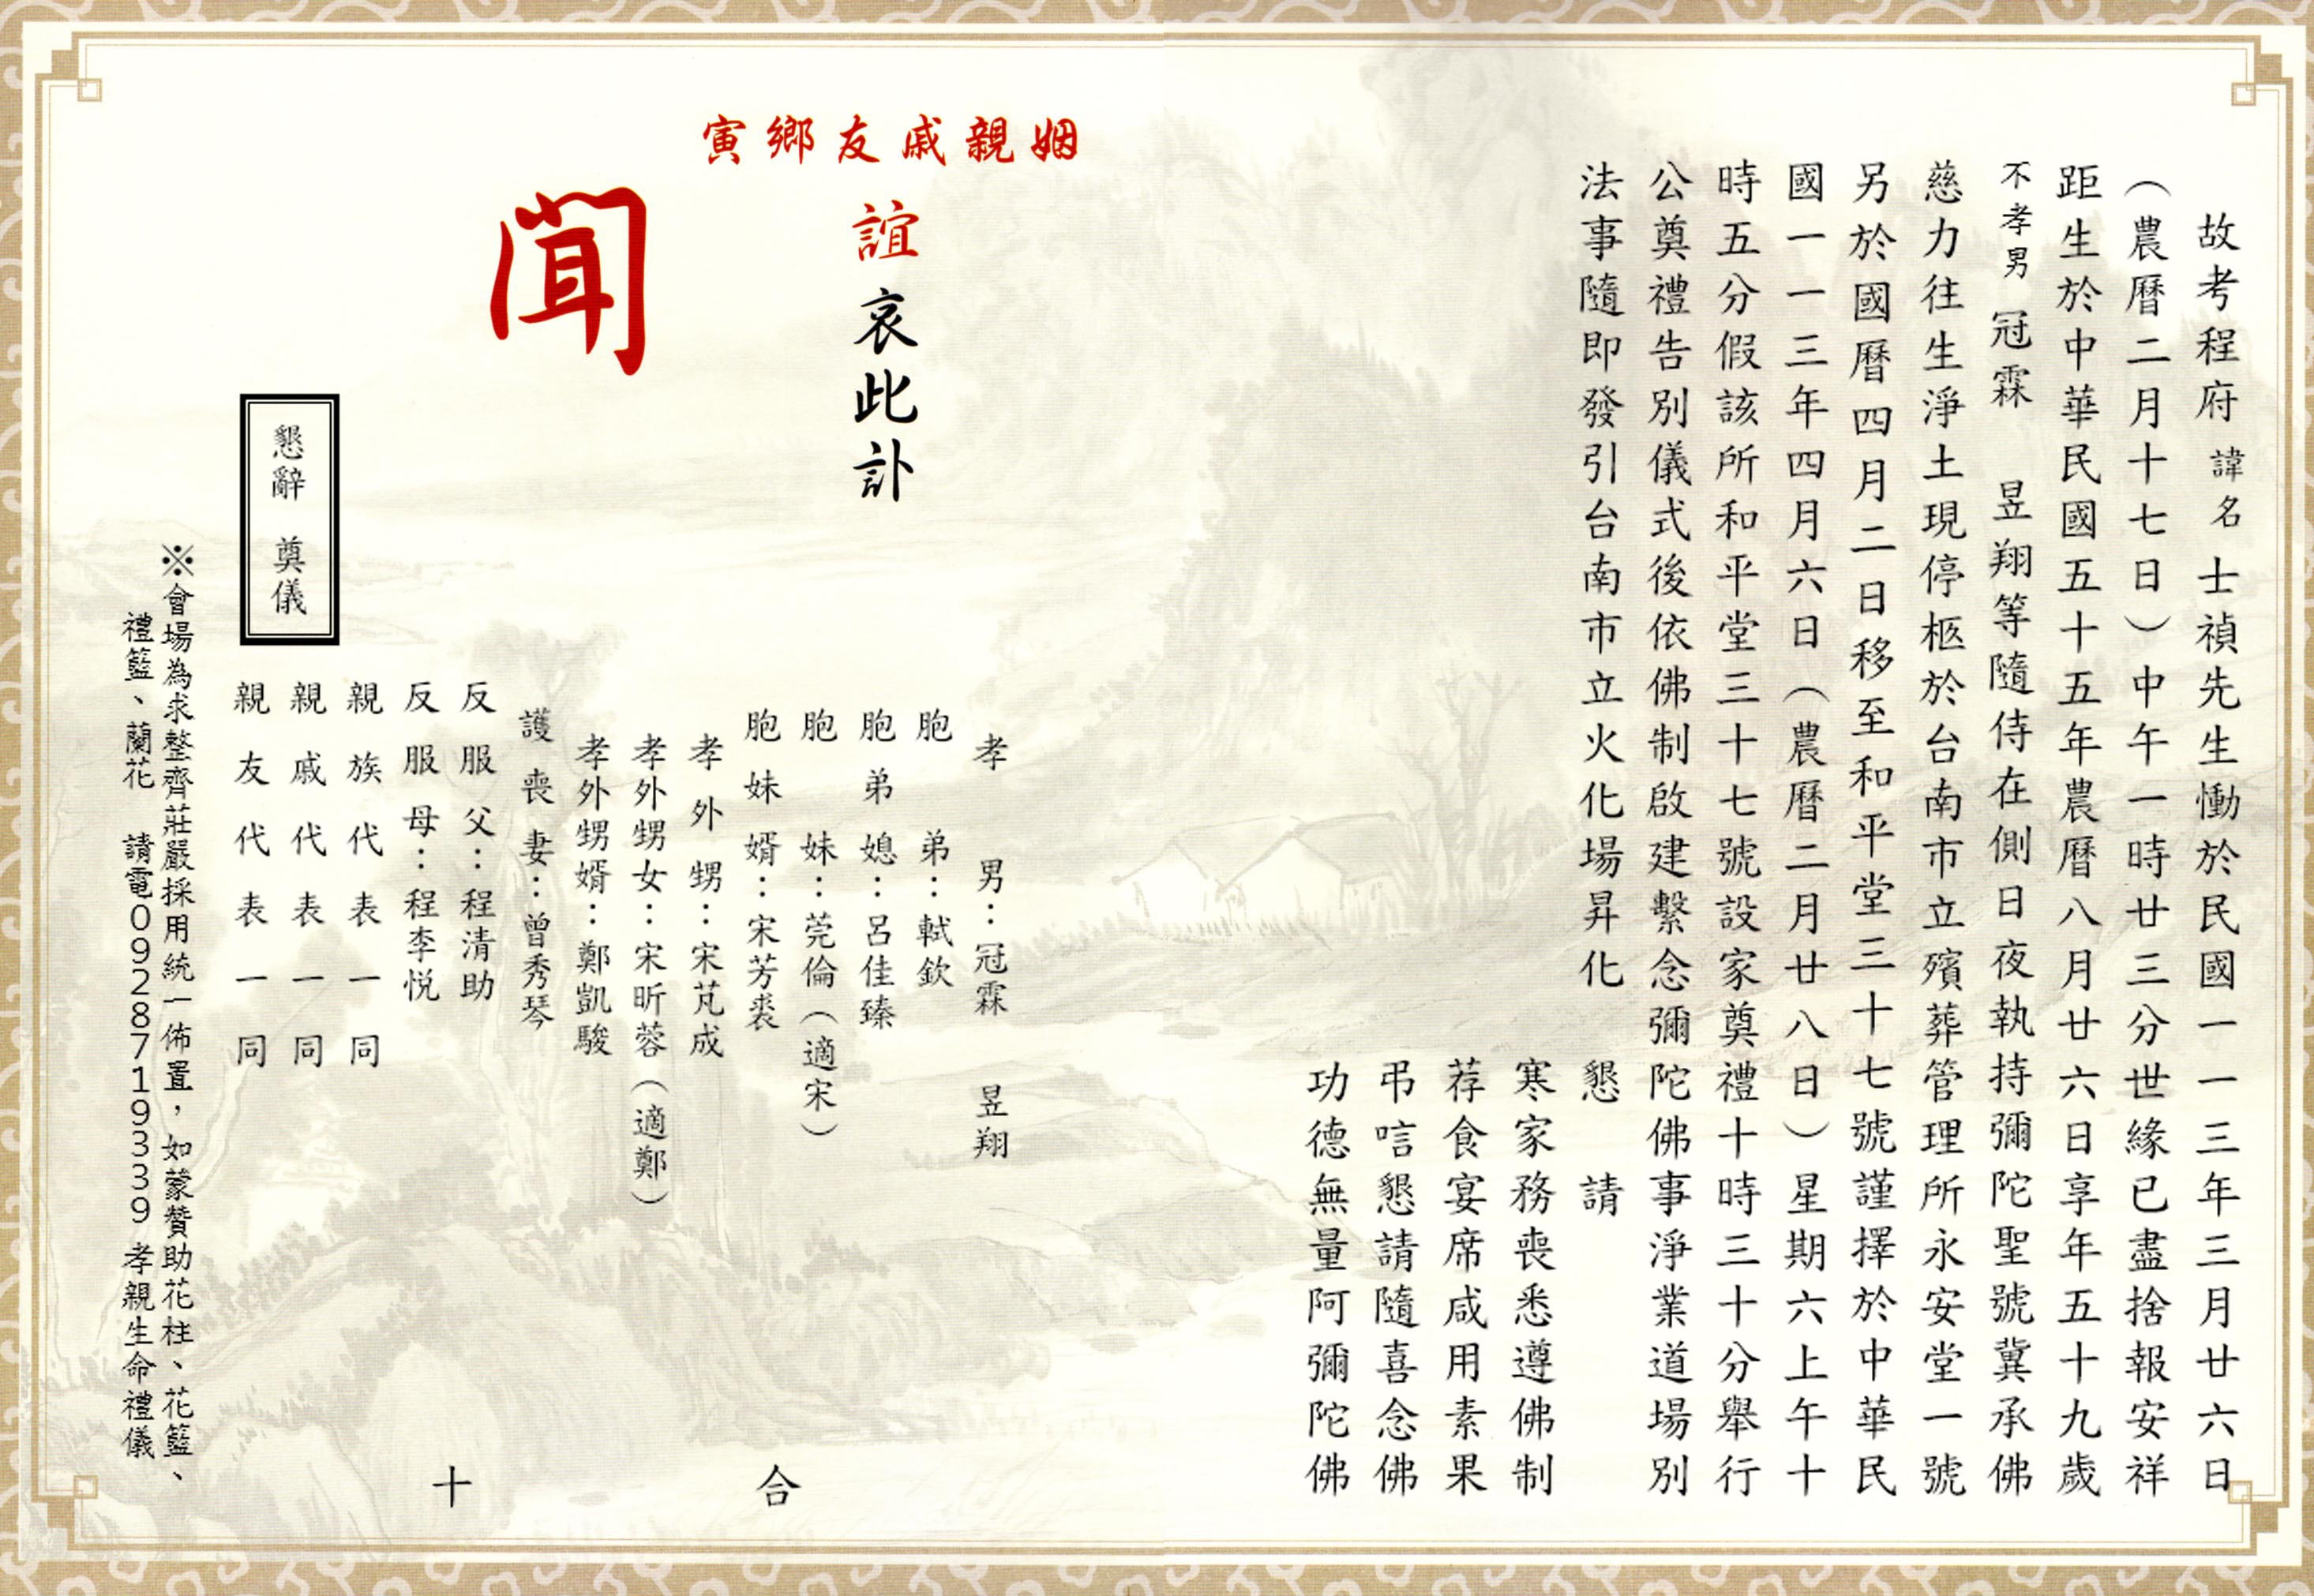 故考程府諱名士禎先生慟於民國一一三年三月廿六日
（農曆二月十七日）中午一時廿三分世緣已盡捨報安祥
距生於中華民國五十五年農曆八月廿六日享年五十九歲
不孝男冠霖　昱翔等隨侍在側日夜執持彌陀聖號冀承佛
慈力往生淨土現停柩於台南市立殯葬管理所永安堂一號
另於國曆四月二日移至和平堂三十七號謹擇於中華民
國一一三年四月六日（農曆二月廿八日）星期六上午十
時五分假該所和平堂三十七號設家奠禮十時三十分舉行
公奠禮告別儀式後依佛制啟建繫念彌陀佛事淨業道場別
法事隨即發引台南市立火化場昇化　懇　請
寒家務喪悉遵佛制
荐食宴席咸用素果
弔唁懇請隨喜念佛
功德無量阿彌陀佛
姻親戚友鄉寅
誼哀此訃
聞
孝男：冠霖　昱翔
胞弟：軾欽
胞弟媳：呂佳臻
胞妹：莞倫（適宋）
胞妹婿：宋芳裘
孝外甥：宋芃成
孝外甥女：宋昕蓉（適鄭）
孝外甥婿：鄭凱駿
護喪妻：曾秀琴
反服父：程清助
反服母：程李悦
親族代表一同
親戚代表一同
親友代表一同
合十
懇辭　奠儀
※會場為求整齊莊嚴採用統一佈置，如蒙贊助花柱、花籃、
禮籃、蘭花　請電0928719339 孝親生命禮儀